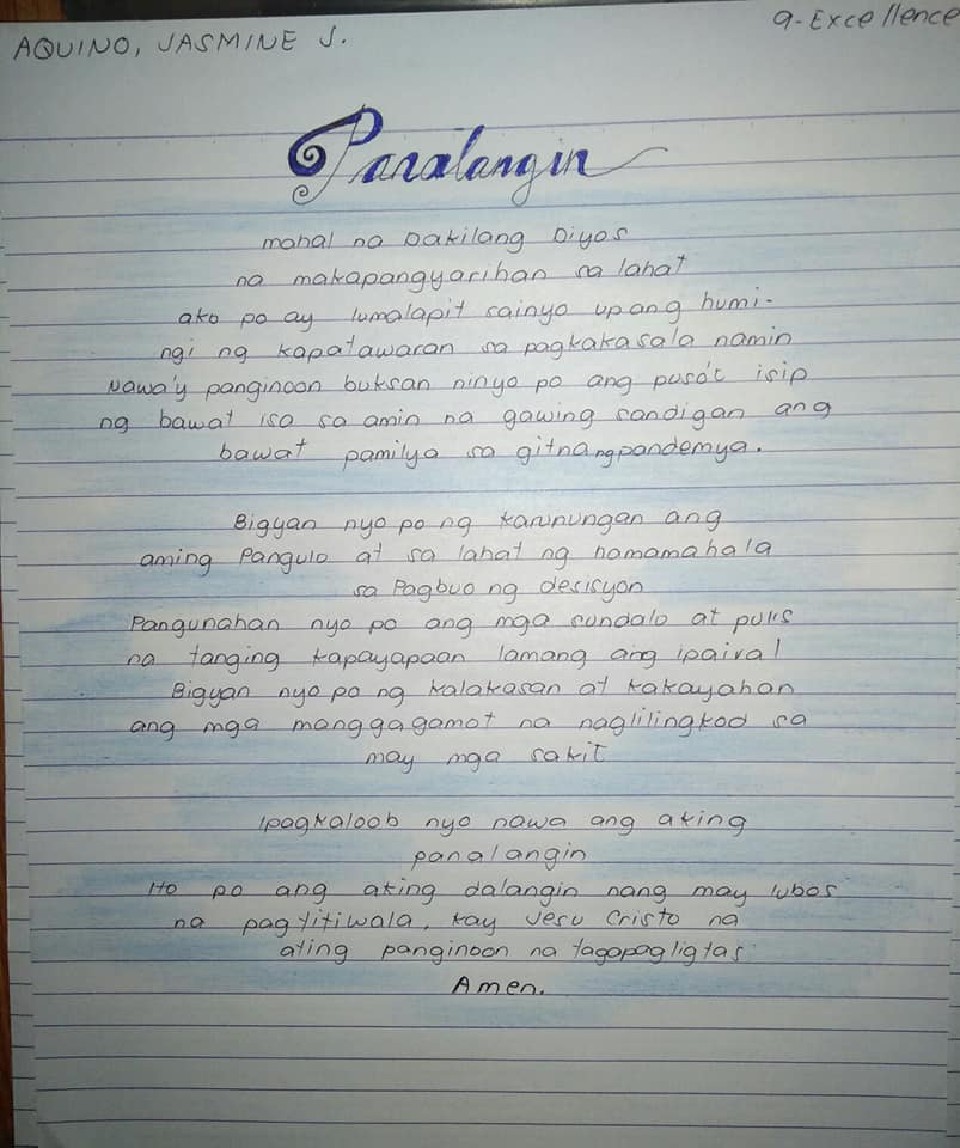 AQUINO, JASMINE J.
9-Excellence
Panalangin
mahal na Dakilang Diyos
na makapangyarihan sa lahat
ako po ay lumalapit sainyo upang humi-
ngi ng kapatawaran sa pagkakasala namin
Nawa'y panginoon buksan ninyo po ang puso't isip
ng bawat isa sa amin na gawing sandigan ang
bawat pamilya sa gitna ng pandemya.
Bigyan nyo po ng karunungan ang
aming Pangulo at sa lahat ng namamahala
sa Pagbuo ng desisyon
Pangunahan nyo po ang mga sundalo at pulis
na tanging kapayapaan lamang ang ipairal
Bigyan nyo po ng kalakasan at kakayahan
ang mga manggagamot na naglilingkod sa
may mga sakit
Ipagkaloob nyo nawa ang aking
panalangin
Ito po ang aking dalangin nang may lubos
na pagtitiwala, kay Jesu Cristo na
ating panginoon na tagapagligtas
Amen.